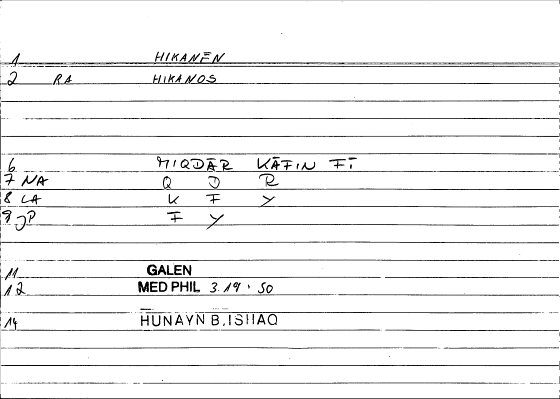 1 HIKANĒN
2 RA HIKANOS
6 MIQDĀR KĀFIN FĪ
7 NA Q D R
8 LA K F Y
9 JP F Y
11 GALEN
12 MED PHIL 3.19.50
14 HUNAYN B.ISHAQ